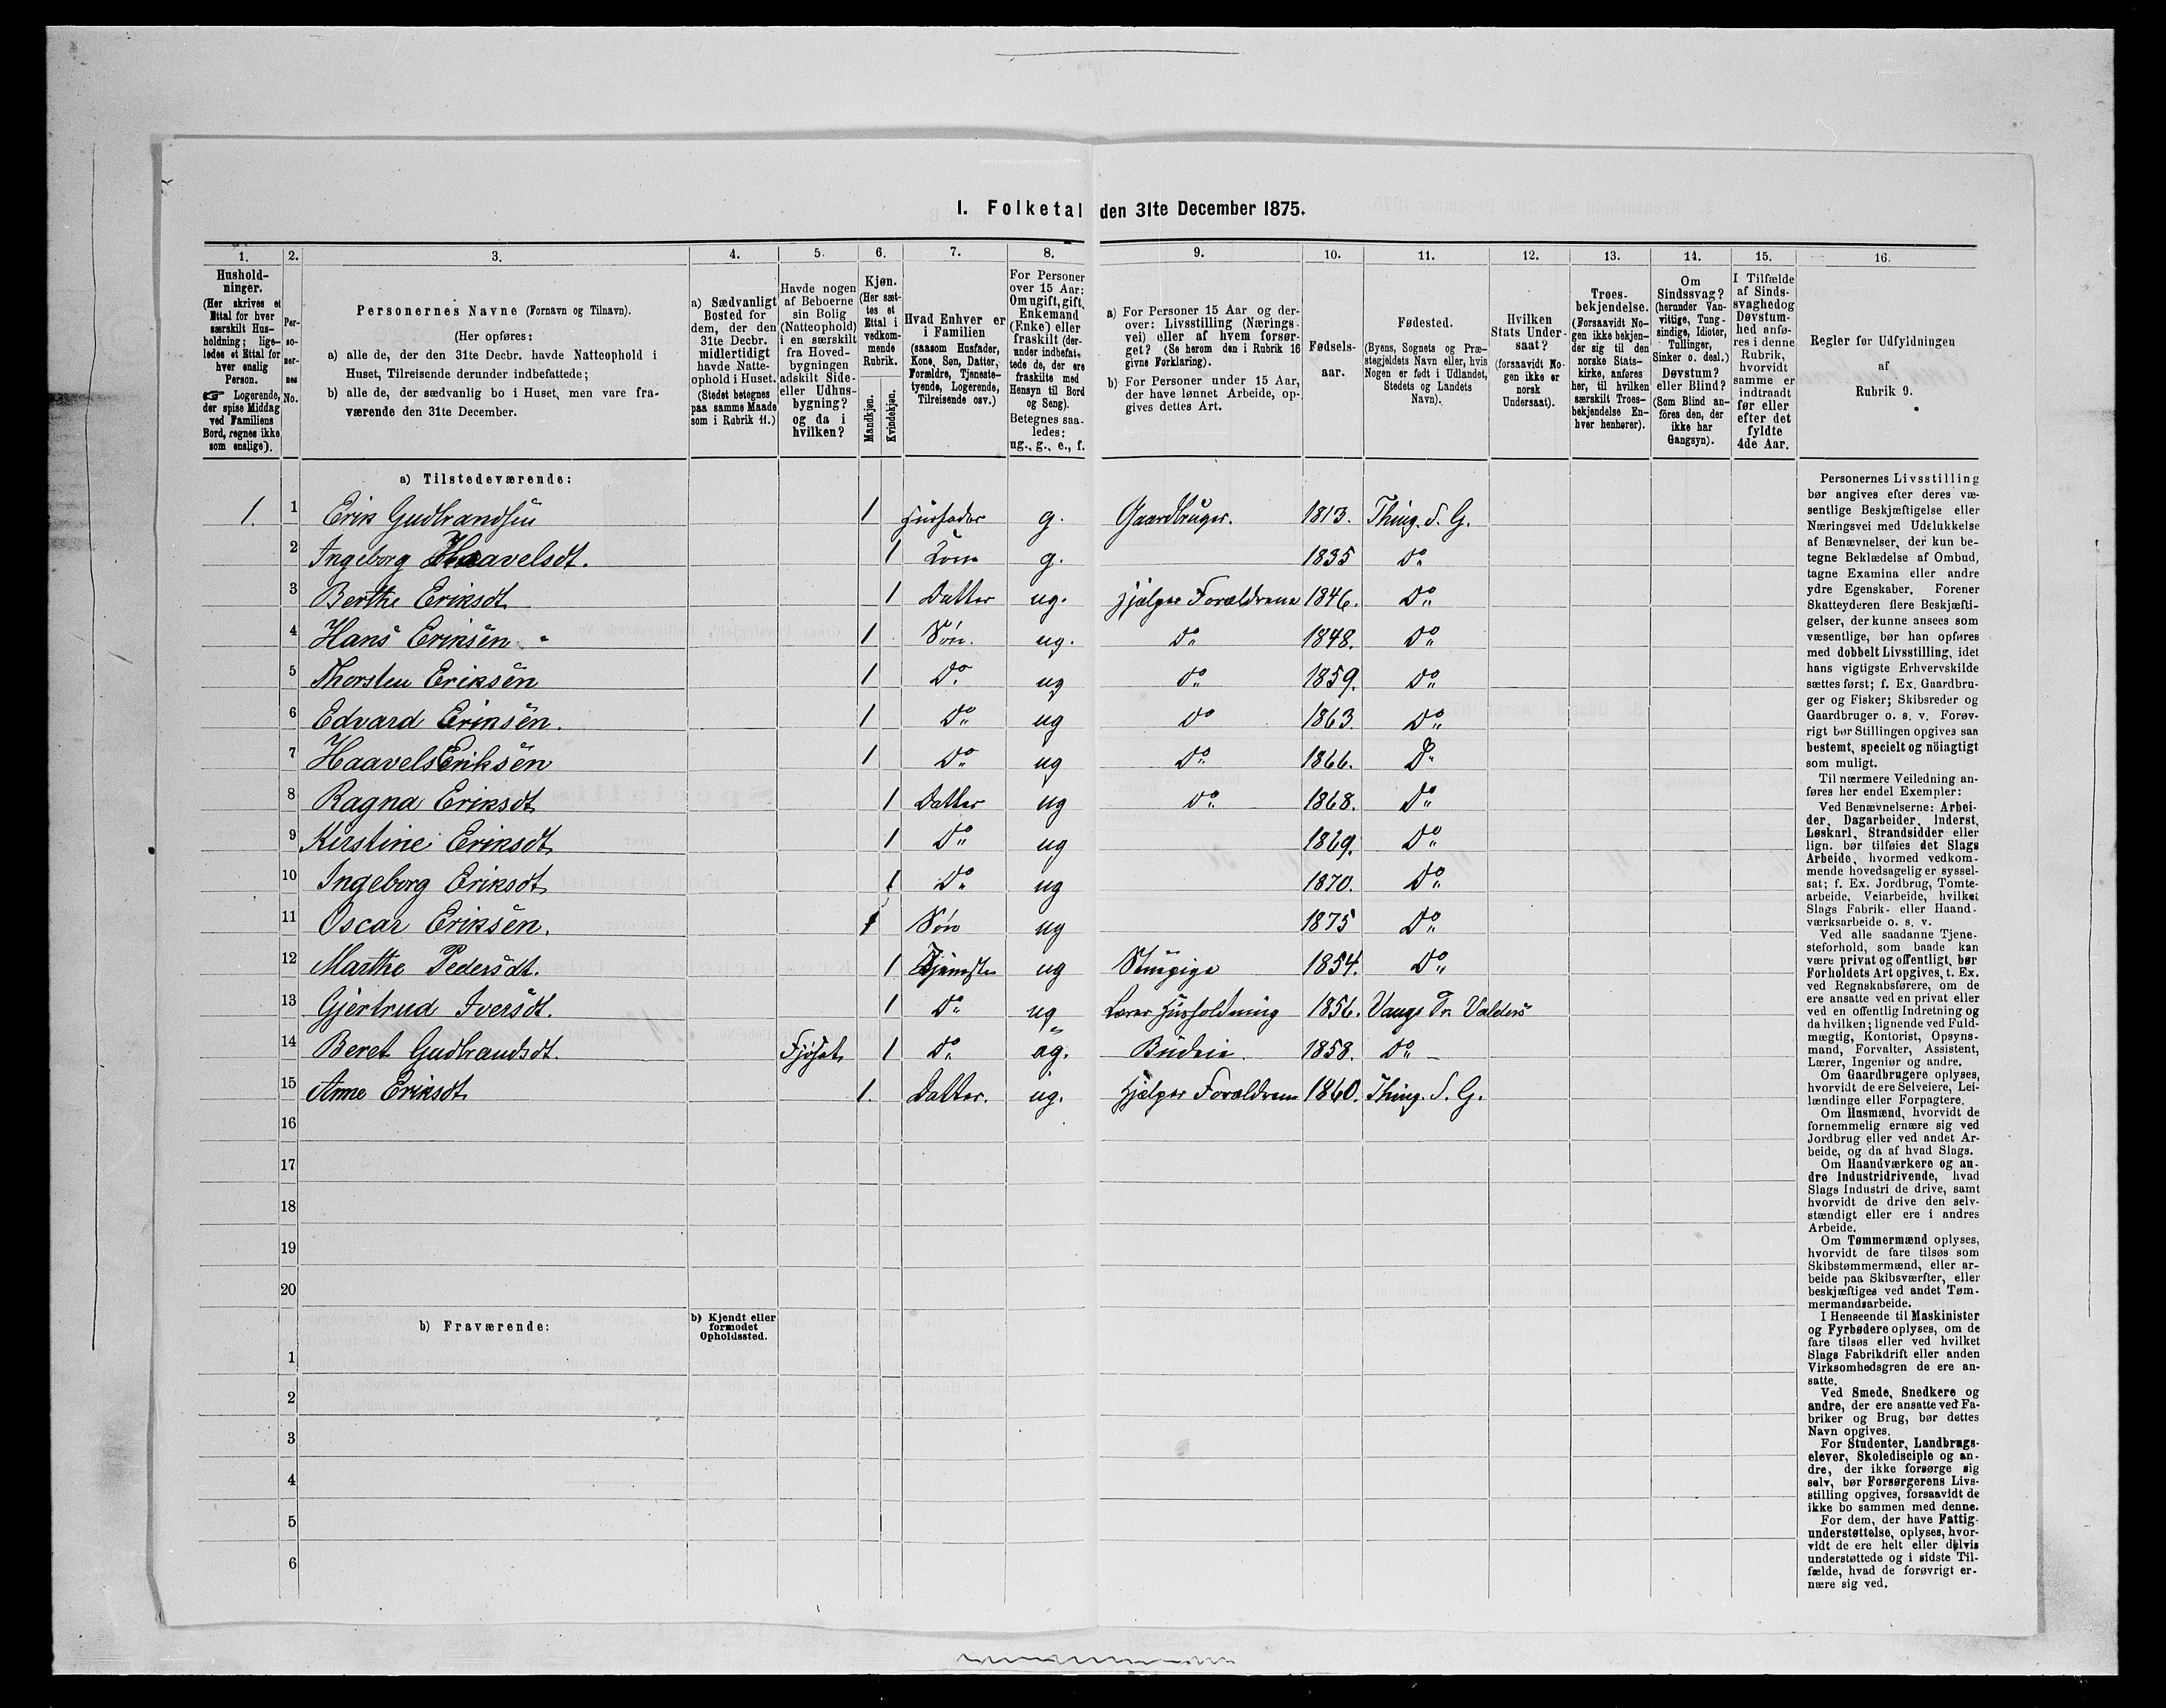 1. Folketal den 31te December 1875.
1. 2. 3. 4. 5. 6. 7. 8. 9. 10. 11. 12. 13. 14. 15. 16.
Hushold-
ninger.
(Her skrives et
Ettal for hver
særskilt Hus-
holdning; lige-
ledes et Ettal for
hver enslig
Person.
☞ Logerende,
der spise Middag
ved Familiens
Bord, regnes ikke
som enslige).
Per-
so-
ner-
nes
No.
Personernes Navne (Fornavn og Tilnavn).
(Her opføres:
a) alle de, der den 31te Decbr. havde Natteophold i
Huset, Tilreisende derunder indbefattede;
b) alle de, der sædvanlig bo i Huset, men vare fra-
værende den 31te December.
a) Sædvanligt
Bosted for
dem, der den
31te Decbr.
midlertidigt
havde Natte-
ophold i Huset.
(Stedet betegnes
paa samme Maade
som i Rubrik 11.)
Havde nogen
af Beboerne
sin Bolig
(Natteophold)
i en særskilt
fra Hoved-
bygningen
adskilt Side-
eller Udhus-
bygning?
og da i
hvilken?
Kjøn.
(Her sæt-
tes et
Ettal i
vedkom-
mende
Rubrik.
Mandkjøn.
Kvindekjøn.
Hvad Enhver er
i Familien
(saasom Husfader,
Kone, Søn, Datter,
Forældre, Tjeneste-
tyende, Logerende,
Tilreisende osv.)
For Personer
over 15 Aar:
Om ugift, gift,
Enkemand
(Enke) eller
fraskilt (der-
under indbefat-
tede de, der ere
fraskilte med
Hensyn til Bord
og Seng).
Betegnes saa-
ledes:
ug., g., e., f.
a) For Personer 15 Aar og der-
over: Livsstilling (Nærings-
vei) eller af hvem forsør-
get? (Se herom den i Rubrik 16
givne Forklaring).
b) For Personer under 15 Aar,
der have lønnet Arbeide, op-
gives dettes Art.
Fødsels-
aar.
Fødested.
(Byens, Sognets og Præ-
stegjeldets Navn eller, hvis
Nogen er født i Udlandet,
Stedets og Landets
Navn).
Hvilken
Stats Under-
saat?
(forsaavidt No-
gen ikke er
norsk
Undersaat).
Troes-
bekjendelse.
(Forsaavidt No-
gen ikke bekjen-
der sig til den
norske Stats-
kirke, anføres
her, til hvilken
særskilt Troes-
bekjendelse En-
hver henhører).
Om
Sindssvag?
(herunder Van-
vittige, Tung-
sindige, Idioter,
Tullinger,
Sinker o. desl.)
Døvstum?
eller Blind?
(Som Blind an-
föres den, der
ikke har
Gangsyn).
I Tilfælde
af Sinds-
svaghedog
Døvstum-
hed anfø-
res i denne
Rubrik,
hvorvidt
samme er
indtraadt
før eller
efter det
fyldte
4de Aar.
Regler for Udfyldningen
af
Rubrik 9.
a) Tilstedeværende:
1. 1 Erik Gudbrandsen 1 Husfader g. Gaardbruger. 1813. Thing. S. G.
2 Ingeborg Haavelsdt. 1 Kone g. 1835 Do
3 Berthe Eriksdt. 1 Datter ug. Hjælper Forældrene 1846. Do
4 Hans Eriksen 1 Søn. ug. Do 1848. Do
5 Thorsten Eriksen 1 Do ug do 1859. Do
6 Edvard Eriksen. 1 Do ug Do 1863 Do
7 Haavels Eriksen 1 Do ug Do 1866. Do
8 Ragna Eriksdt. 1 Datter ug Do 1868. Do
9 Kirstine Eriksdt. 1 Do ug 1869. Do
10 Ingeborg Eriksdt. 1 Do ug 1870. Do
11 Oscar Eriksen. 1 Søn ug 1875 Do
12 Marthe Pedersdt. 1 Tjeneste ug Stuepige 1854. Do
13 Gjertrud Iversdt. 1 Do ug Lærer Husholdning 1856. Vangs Pr. Valders
14 Beret Gudbrandsdt. Fjøset 1 Do ug. Budeie 1858. Do
15 Anne Eriksdt. 1. Datter. ug. Hjælper Forældrene 1860. Thing. S. G.
16
17
18
19
20
b) Fraværende:
b) Kjendt eller
formodet
Opholdssted.
1
2
3
4
5
6
Personernes Livsstilling
bør angives efter deres væ-
sentlige Beskjæftigelse eller
Næringsvei med Udelukkelse
af Benævnelser, der kun be-
tegne Beklædelse af Ombud,
tagne Examina eller andre
ydre Egenskaber. Forener
Skatteyderen flere Beskjæfti-
gelser, der kunne ansees som
væsentlige, bør han opføres
med dobbelt Livsstilling, idet
hans vigtigste Erhvervskilde
sættes først; f. Ex. Gaardbru-
ger og Fisker; Skibsreder og
Gaardbruger o. s. v. Forøv-
rigt bør Stillingen opgives saa
bestemt, specielt og nöiagtigt
som muligt.
Til nærmere Veiledning an-
føres her endel Exempler:
Ved Benævnelserne: Arbei-
der, Dagarbeider, Inderst,
Løskarl, Strandsidder eller
lign. bør tilføies det Slags
Arbeide, hvormed vedkom-
mende hovedsagelig er syssel-
sat; f. Ex. Jordbrug, Tomte-
arbeide, Veiarbeide, hvilket
Slags Fabrik- eller Haand-
værksarbeide o. s. v.
Ved alle saadanne Tjene-
steforhold, som baade kan
være privat og offentligt, bør
Forholdets Art opgives, t. Ex.
ved Regnskabsførere, om de
ere ansatte ved en privat eller
ved en offentlig Indretning og
da hvilken; lignende ved Fuld-
mægtig, Kontorist, Opsyns-
mand, Forvalter, Assistent,
Lærer, Ingeniør og andre.
Om Gaardbrugere oplyses,
hvorvidt de ere Selveiere, Lei-
lændinge eller Forpagtere.
Om Husmænd, hvorvidt de
fornemmelig ernære sig ved
Jordbrug eller ved andet Ar-
beide, og da af hvad Slags.
Om Haandværkere og an-
dre Industridrivende, hvad
Slags Industri de drive, samt
hvorvidt de drive den selv-
stændigt eller ere i andres
Arbeide.
Om Tømmermænd oplyses,
hvorvidt de fare tilsøs som
Skibstømmermænd, eller ar-
beide paa Skibsværfter, eller
beskjæftiges ved andet Tøm-
mermandsarbeide.
I Henseende til Maskinister
og Fyrbødere oplyses, om de
fare tilsøs eller ved hvilket
Slags Fabrikdrift eller anden
Virksomhedsgren de ere an-
satte.
Ved Smede, Snedkere og
andre, der ere ansatte ved Fa-
briker og Brug, bør dettes
Navn opgives.
For Studenter, Landbrugs-
elever, Skoledisciple og an-
dre, der ikke forsørge sig
selv, bør Forsørgerens Livs-
stilling opgives, forsaavidt de
ikke bo sammen med denne.
For dem, der have Fattig-
understøttelse, oplyses, hvor-
vidt de ere helt eller delvis
understøttede og i sidste Til-
fælde, hvad de forøvrigt er-
nære sig ved.